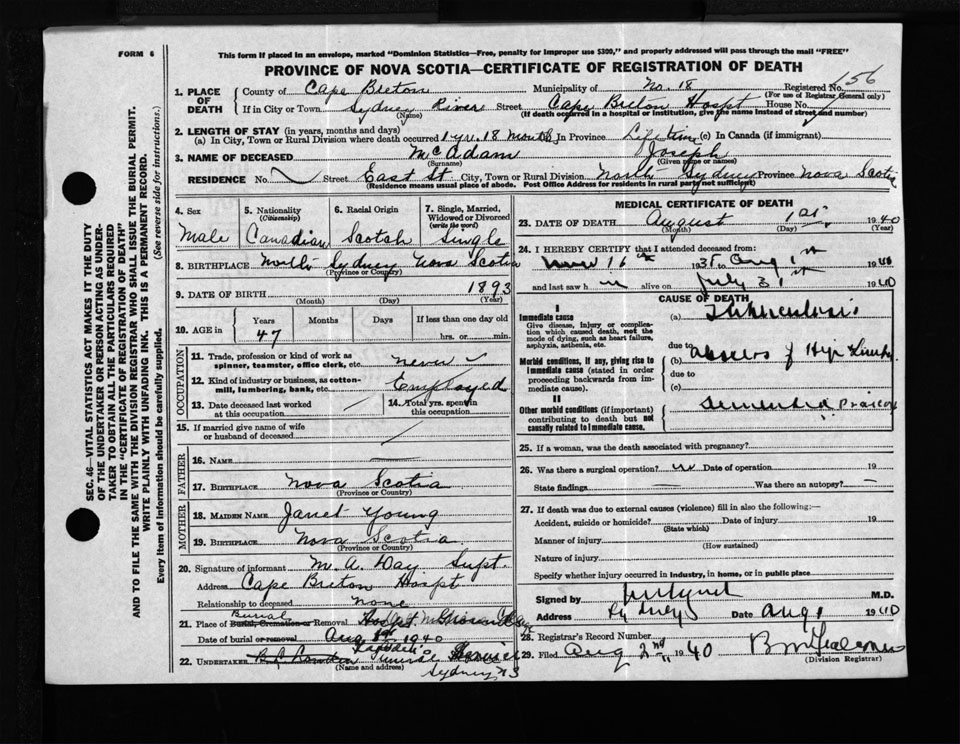 FORM 6
This form if placed in an envelope, marked "Dominion Statistics—Free, penalty for improper use $300," and properly addressed will pass through the mail "FREE"
PROVINCE OF NOVA SCOTIA—CERTIFICATE OF REGISTRATION OF DEATH
SEC. 46—VITAL STATISTICS ACT MAKES IT THE DUTY
OF THE UNDERTAKER OR PERSON ACTING AS UNDER-
TAKER TO OBTAIN ALL THE PARTICULARS REQUIRED
IN THE "CERTIFICATE OF REGISTRATION OF DEATH"
AND TO FILE THE SAME WITH THE DIVISION REGISTRAR WHO SHALL ISSUE THE BURIAL PERMIT.
WRITE PLAINLY WITH UNFADING INK. THIS IS A PERMANENT RECORD.
Every item of information should be carefully supplied. (See reverse side for instructions.)
1. PLACE OF DEATH
County of Cape Breton Municipality of No. 18 Registered No. 156
(For use of Registrar General only)
If in City or Town Sydney River Street Cape Breton Hospt House No.
(Name) (If death occurred in a hospital or institution, give the name instead of street and number)
2. LENGTH OF STAY (in years, months and days)
(a) In City, Town or Rural Division where death occurred 1 yr. 18 months (b) In Province Lifetime (c) In Canada (if immigrant)
3. NAME OF DECEASED McAdam Joseph
(Surname) (Given name or names)
RESIDENCE No. Street East St. City, Town or Rural Division North Sydney Province Nova Scotia
(Residence means usual place of abode. Post Office Address for residents in rural parts not sufficient)
4. Sex
Male
5. Nationality
(Citizenship)
Canadian
6. Racial Origin
Scotch
7. Single, Married,
Widowed or Divorced
(write the word)
Single
8. BIRTHPLACE North Sydney Nova Scotia
(Province or Country)
9. DATE OF BIRTH 1893
(Month) (Day) (Year)
10. AGE in Years Months Days If less than one day old
47 hrs. or min.
OCCUPATION
11. Trade, profession or kind of work as
spinner, teamster, office clerk, etc. never
12. Kind of industry or business, as cotton-
mill, lumbering, bank, etc. Employed
13. Date deceased last worked
at this occupation
14. Total yrs. spent in
this occupation
15. If married give name of wife
or husband of deceased
FATHER
16. NAME
17. BIRTHPLACE Nova Scotia
(Province or Country)
MOTHER
18. MAIDEN NAME Janet Young
19. BIRTHPLACE Nova Scotia
(Province or Country)
20. Signature of informant M. A. Day Supt.
Address Cape Breton Hospt
Relationship to deceased none
Burial
21. Place of Burial, Cremation or Removal Hospt
Date of burial or removal Aug 1940
22. UNDERTAKER Funeral Service
(Name and address)
Sydney NS
MEDICAL CERTIFICATE OF DEATH
23. DATE OF DEATH August 1st 1940
(Month) (Day) (Year)
24. I HEREBY CERTIFY that I attended deceased from:
16th 193 to Aug 1st 1940
and last saw h m alive on July 31st 1940
CAUSE OF DEATH
I
Immediate cause
Give disease, injury or complica-
tion which caused death, not the
mode of dying, such as heart failure,
asphyxia, asthenia, etc.
(a) Tuberculosis
due to
Morbid conditions, if any, giving rise to
immediate cause (stated in order
proceeding backwards from im-
mediate cause).
(b) abscess of Hip
due to
(c)
II
Other morbid conditions (if important)
contributing to death but not
causally related to immediate cause.
Dementia Praecox
25. If a woman, was the death associated with pregnancy?
26. Was there a surgical operation? no Date of operation 19
State findings — Was there an autopsy? —
27. If death was due to external causes (violence) fill in also the following:—
Accident, suicide or homicide? Date of injury 19
(State which)
Manner of injury
(How sustained)
Nature of injury
Specify whether injury occurred in industry, in home, or in public place
Signed by M.D.
Address Sydney Date Aug 1 1940
28. Registrar's Record Number
29. Filed Aug 2nd 1940
(Division Registrar)